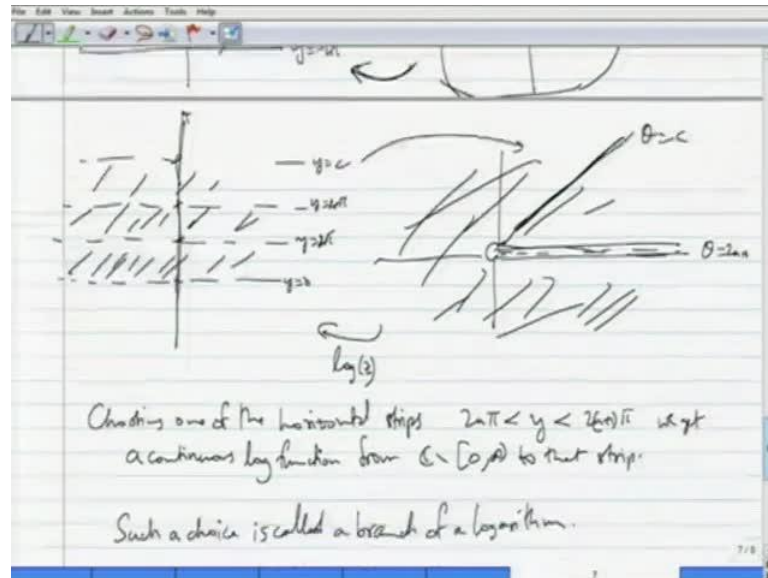 File Edit View Insert Actions Tools Help
y=c
θ=c
y=2π
y=0
log(z)
Choosing one of the horizontal strips 2nπ < y < 2(n+1)π we get
a continuous log function from ℂ \ [0,∞) to that strip.
Such a choice is called a branch of a logarithm.
7/8